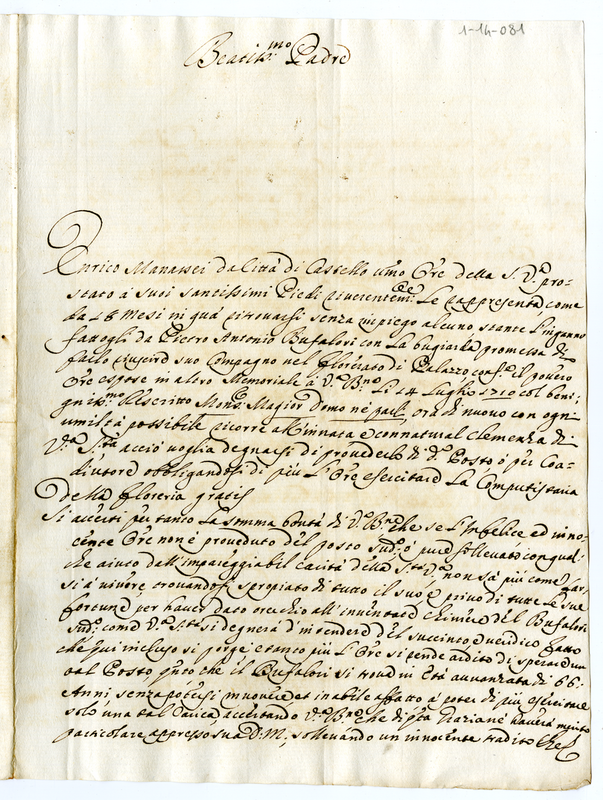 1-14-081
Beatis:mo Padre
Enrico Manassei da Città di Castello umo Ore della S. V.a pro-
strato à suoi Santissimi Piedi riverentem:e Le rappresenta come
da 18 Mesi in quà ritrovarsi senza impiego alcuno stante L'inganno
fattogli da Pietro Antonio Bufalori con La bugiarda promessa di
farlo riuscire suo Compagno nel floreriato di Palazzo conf.e il povero
Ore espose in altro Memoriale à V.a B.ne Li 14 Luglio 1710 col beni-
gnis:mo Rescritto Mons.e Magior Domo ne parli, ora di nuovo con ogni
umiltà possibile ricorre all'innata e connatural Clemenza di
V.a S.tà acciò voglia degnarsi di provederlo di d.o Posto ò per Coa-
diutore obligandosi di più L'Ore esercitare La Computistaria
della floreria gratis
Si accerti per tanto La somma bontà di V.a B.ne che se L'infelice ed inno-
cente Ore non è proveduto del posto sud.o ò pure sollevato con qual-
che aiuto dall'impareggiabil carità della S.tà V.a non sà più come far-
si à vivere, trovandosi spropiato di tutto il suo e privo di tutte Le sue
fortune per haver dato orecchio all'inventate chimere del Bufalori
sud.o come V.a S.tà si degnerà d'intendere del succinto e veridico fatto
che qui incluso si porge, e tanto più L'Ore si rende ardito di sperare un
tal Posto che il Bufalori si trova in Età avvanzata di 66:
Anni senza potersi muovere, et inabile affatto à poter di più esercitare
solo una tal Carica, accertando V.a B.ne che di haverà merito
particolare appresso sua D. M., sollevando un innocente tradito che